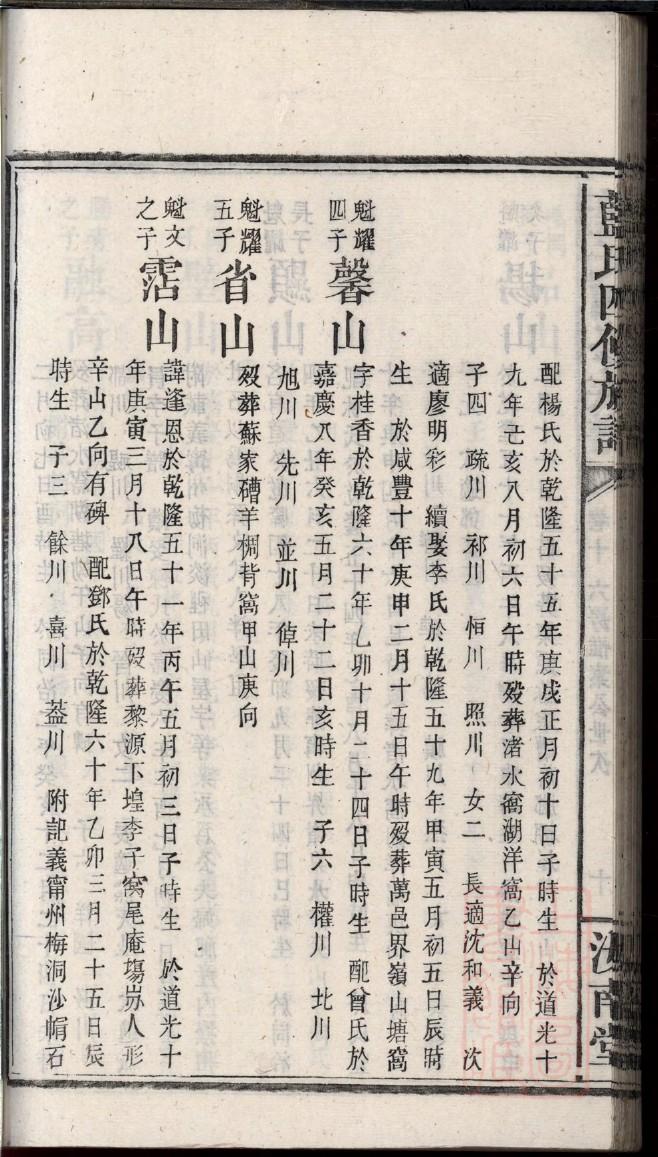 藍氏四修族譜
汝南堂
配楊氏於乾隆五十五年庚戌正月初十日子時生 於道光十
九年亡亥八月初六日午時歿葬渚水窩湖洋窩乙山辛向
子四 疏川 祁川 恒川 照川 女二 長適沈和義 次
適廖明彩 續娶李氏於乾隆五十九年甲寅五月初五日辰時
生 於咸豐十年庚申二月十五日午時歿葬萬邑界嶺山塘窩
魁耀四子 馨山 字桂香於乾隆六十年乙卯十月二十四日子時生 配曾氏於
嘉慶八年癸亥五月二十二日亥時生 子六 權川 北川
旭川 先川 並川 倬川
魁耀五子 省山 歿葬蘇家磄羊棡背窩甲山庚向
魁文之子 霑山 諱逢恩於乾隆五十一年丙午五月初三日子時生 於道光十
年庚寅三月十八日午時歿葬黎源下堭李子窩尾庵塲岃人形
辛山乙向有碑 配鄧氏於乾隆六十年乙卯三月二十五日辰
時生 子三 餘川 喜川 葢川 附記義甯州梅洞沙帽石